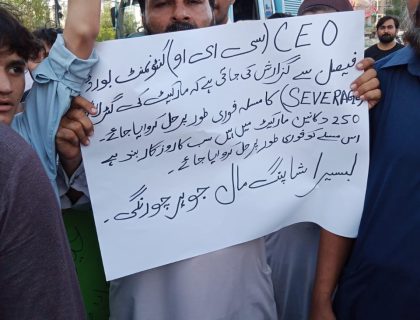 CEO (سی ای او) کنٹونمنٹ بورڈ
فیصل سے گزارش کی جاتی ہے کہ مارکیٹ کی گٹر
(SEVERAGE) کا مسلہ فوری طور پر حل کروایا جائے۔
250 دکانیں مارکیٹ میں ہیں سب کا روزگار بند ہے
اس مسلے کو فوری طور پر حل کروایا جائے۔
شاپنگ مال جوہر چورنگی۔